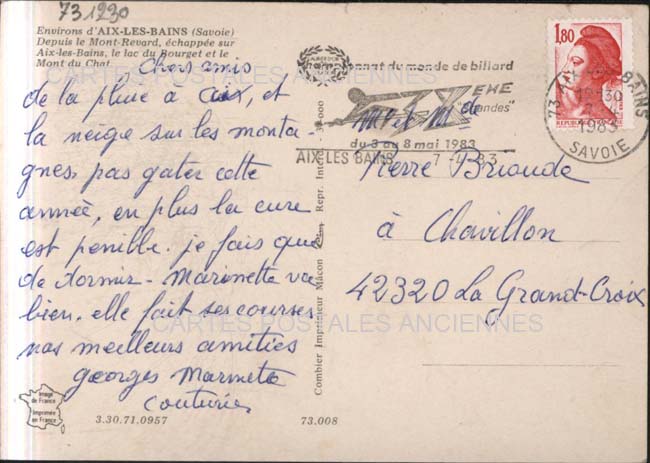 73 1230
Environs d'AIX-LES-BAINS (Savoie)
Depuis le Mont-Revard, échappée sur
Aix-les-Bains, le lac du Bourget et le
Mont du Chat.
Chers amis
de la pluie a aix, et
la neige sur les monta-
gnes, pas gater cette
année, en plus la cure
est penible. je fais que
de dormir - Marinette va
bien. elle fait ses courses
nos meilleurs amitiés
Georges Marinette
Couturier
Image
de France
Imprimée
en France
3.30.71.0957
73.008
Combier Imprimeur Mâcon
Repr. Int
1,80
championnat du monde de billard
du 3 au 8 mai 1983
AIX LES BAINS
7-4 83
73 AIX-LES-BAINS
1983
SAVOIE
Mr et Me
Pierre Briaude
à Chavillon
42320 La Grand-Croix
CARTES POSTALES ANCIENNES
CARTES POSTALES ANCIENNES